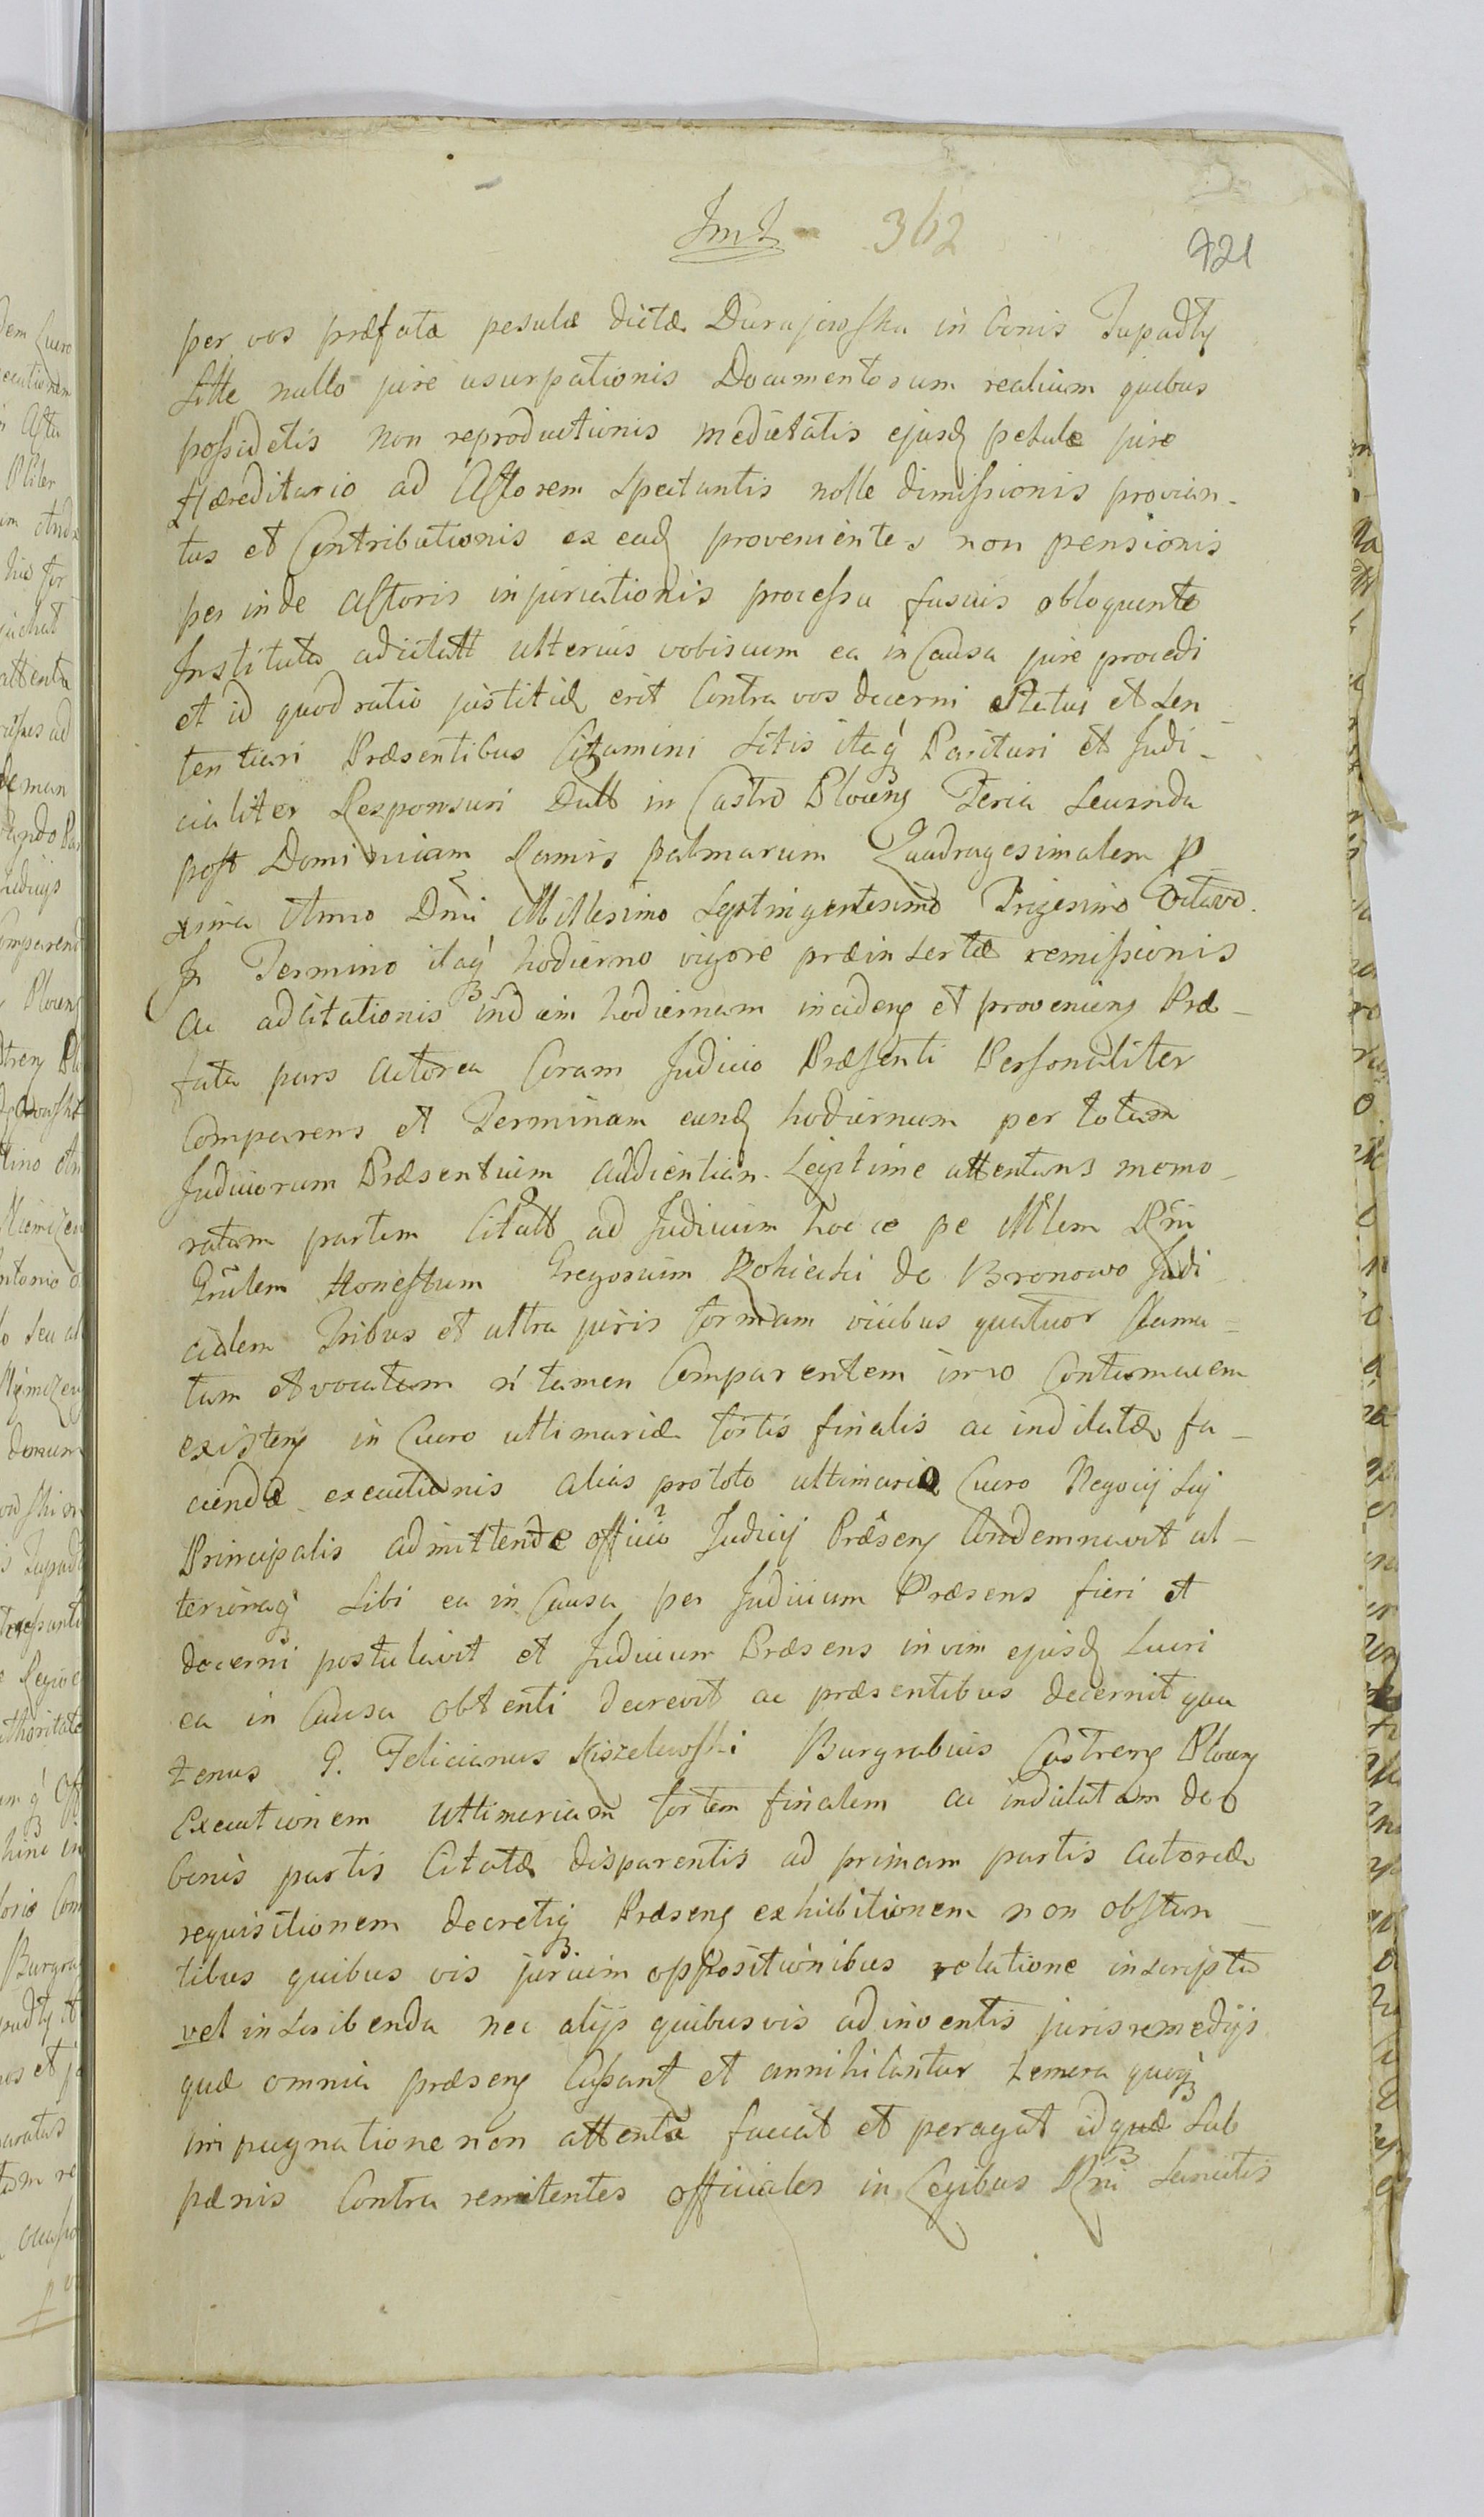 362
721
per vos præfatæ pesulæ dictæ Durajewska in bonis Tupadły
sitæ nullo jure usurpationis Documentorum realium quibus
possidetis non reproductionis medietatis ejusd petulæ jure
Hæreditario ad Actorem spectantis nolle dimissionis provian-
tus et Contributionis ex ead provenientes non pensionis
per inde Actoris injuriationis processu fusius obloquente
Instituta adcitatt ulterius vobiscum ea in Causa jure procedi
et id quod ratio justitiæ erit Contra vos decerni statui et sen
tentiari Præsentibus Citamini sitis itaq Parituri et Judi-
cialiter Responsuri Datt in Castro Plocen Feria Secunda
post Dominicam Ramis palmarum Quadragesimalem p
xima Anno Dni Millesimo Septingentesimo Trigesimo Octavo.
In Termino itaq hodierno vigore præinsertæ remissionis
ac adcitationis indiem hodiernam inciden et provenien Præ-
fata pars actorea Coram Judicio Præsenti Personaliter
Comparens et Terminum eund hodiernum per totam
Judiciorum Præsentium audientiam Legitime attentans memo-
ratam partem Citatt ad Judicium hocce pe Mlem Rni
Gnlem Honestum Gregorium Rokicki de Bronowo Judi
cialem Tribus et ultra juris formam vicibus quatuor Clama-
tum et vocatam n tamen Comparentem imo Contumacem
existen in Lucro ultimariæ fortis finalis ac indilatæ fa-
ciendæ executionis alias pro toto ultimario Lucro Negocij sui
Principalis admittendæ officio Judicij Præsen Condemnavit ul-
terioraq sibi ea in Causa per Judicium Præsens fieri et
decerni postulavit et Judicium Præsens in vim ejusd Lucri
ea in Causa obtenti decrevit ac præsentibus decernit qua
tenus G. Felicianus Kiszelewski Burgrabius Castren Plocen
Executionem ultimariam fortem finalem ac indilatam de
bonis partis Citatæ disparentis ad primam partis actoreæ
requisitionem decretiq Præsen exhibitionem non obstan-
tibus quibus vis jurium oppositionibus relatione inscripta
vel inscribenda nec alijs quibusvis adinventis juris remedijs
quæ omnia præsen Cassant et annihilantur temera quoq
impugnatione non attenta faciat et peragat id que sub
pænis Contra renitentes officiales in Legibus Rni sancitis